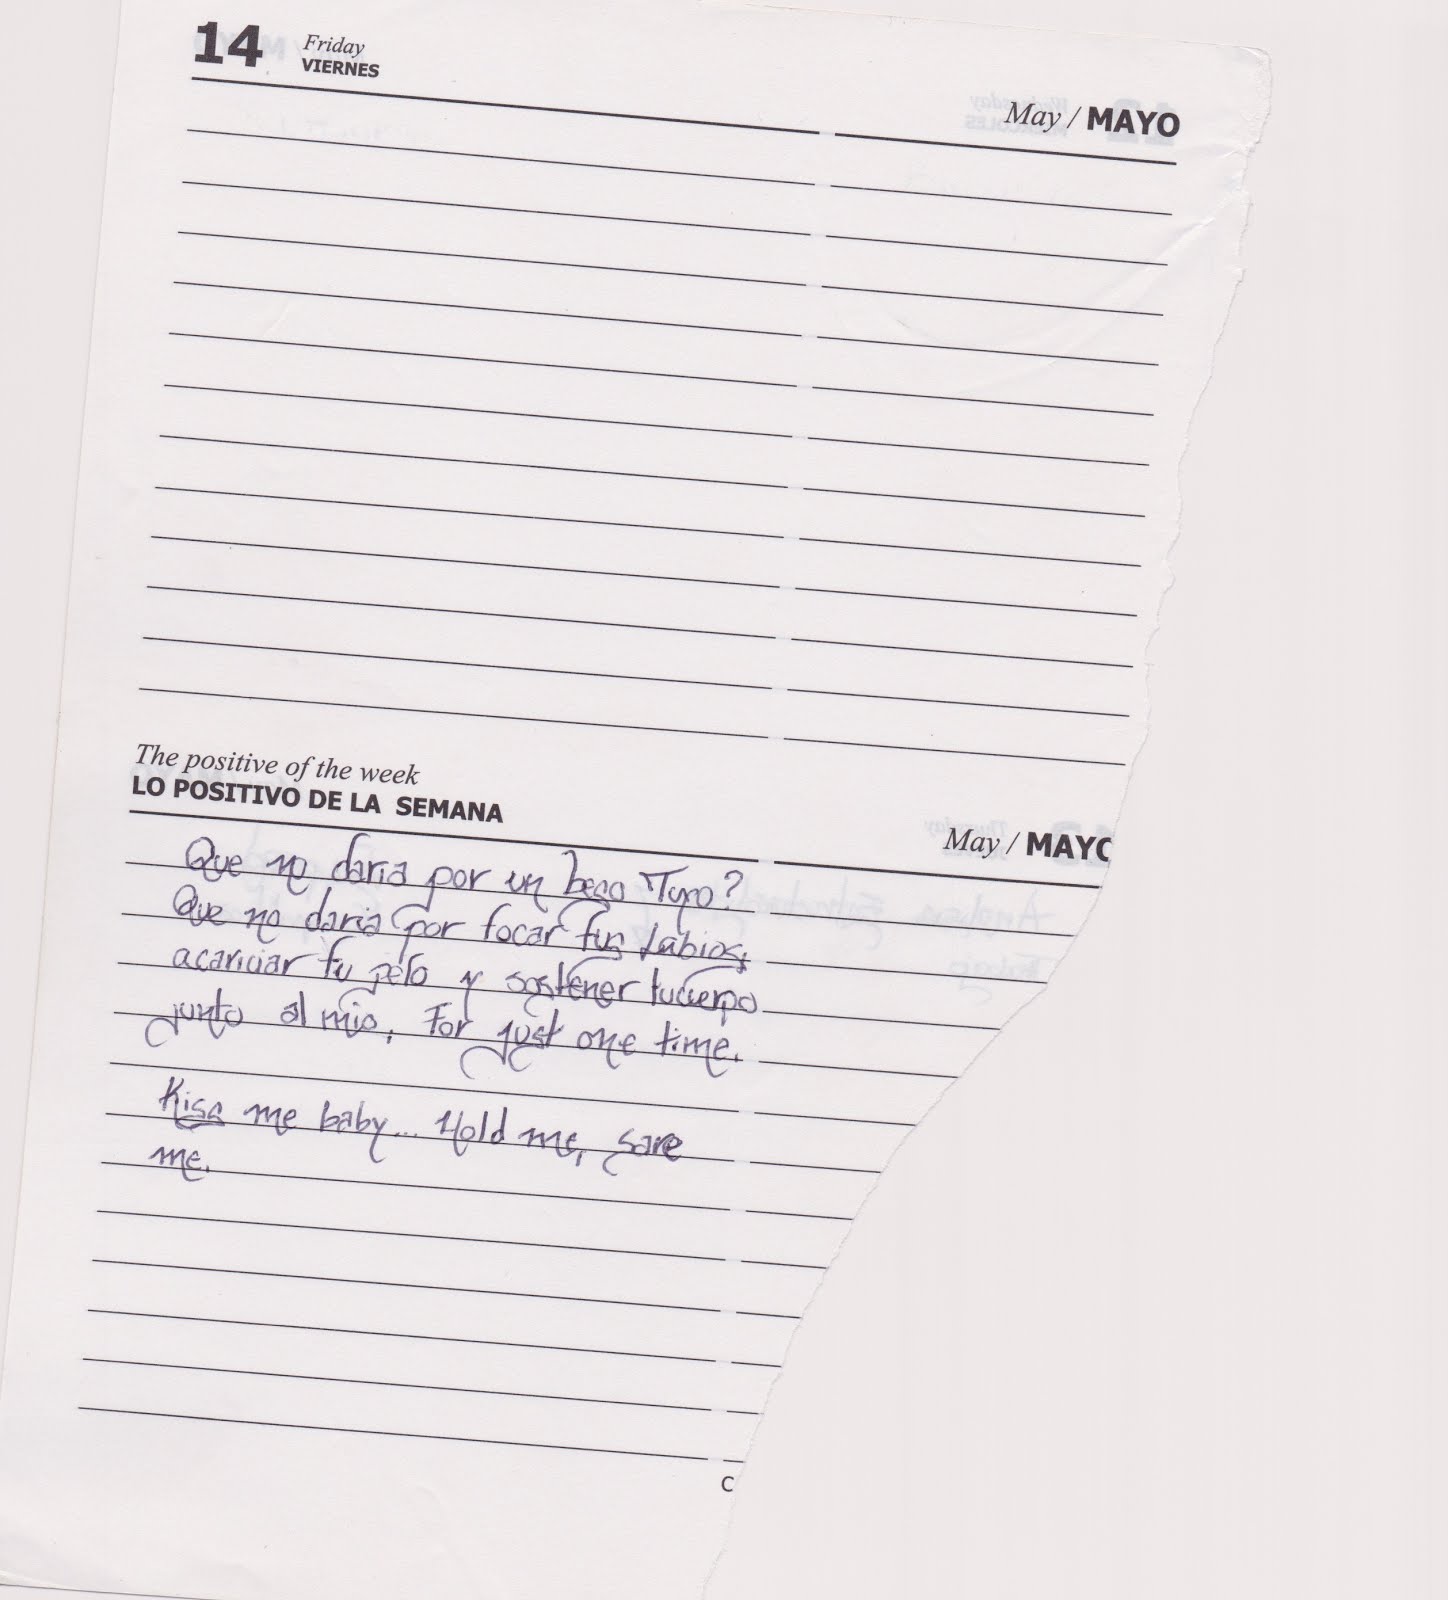 14 Friday
VIERNES
May / MAYO
The positive of the week
LO POSITIVO DE LA SEMANA
May / MAYO
Que no daria por un beso Tuyo?
Que no daria por tocar tus Labios,
acariciar tu pelo y sostener tu cuerpo
junto al mio, For just one time.
Kiss me baby... Hold me, save
me.
C